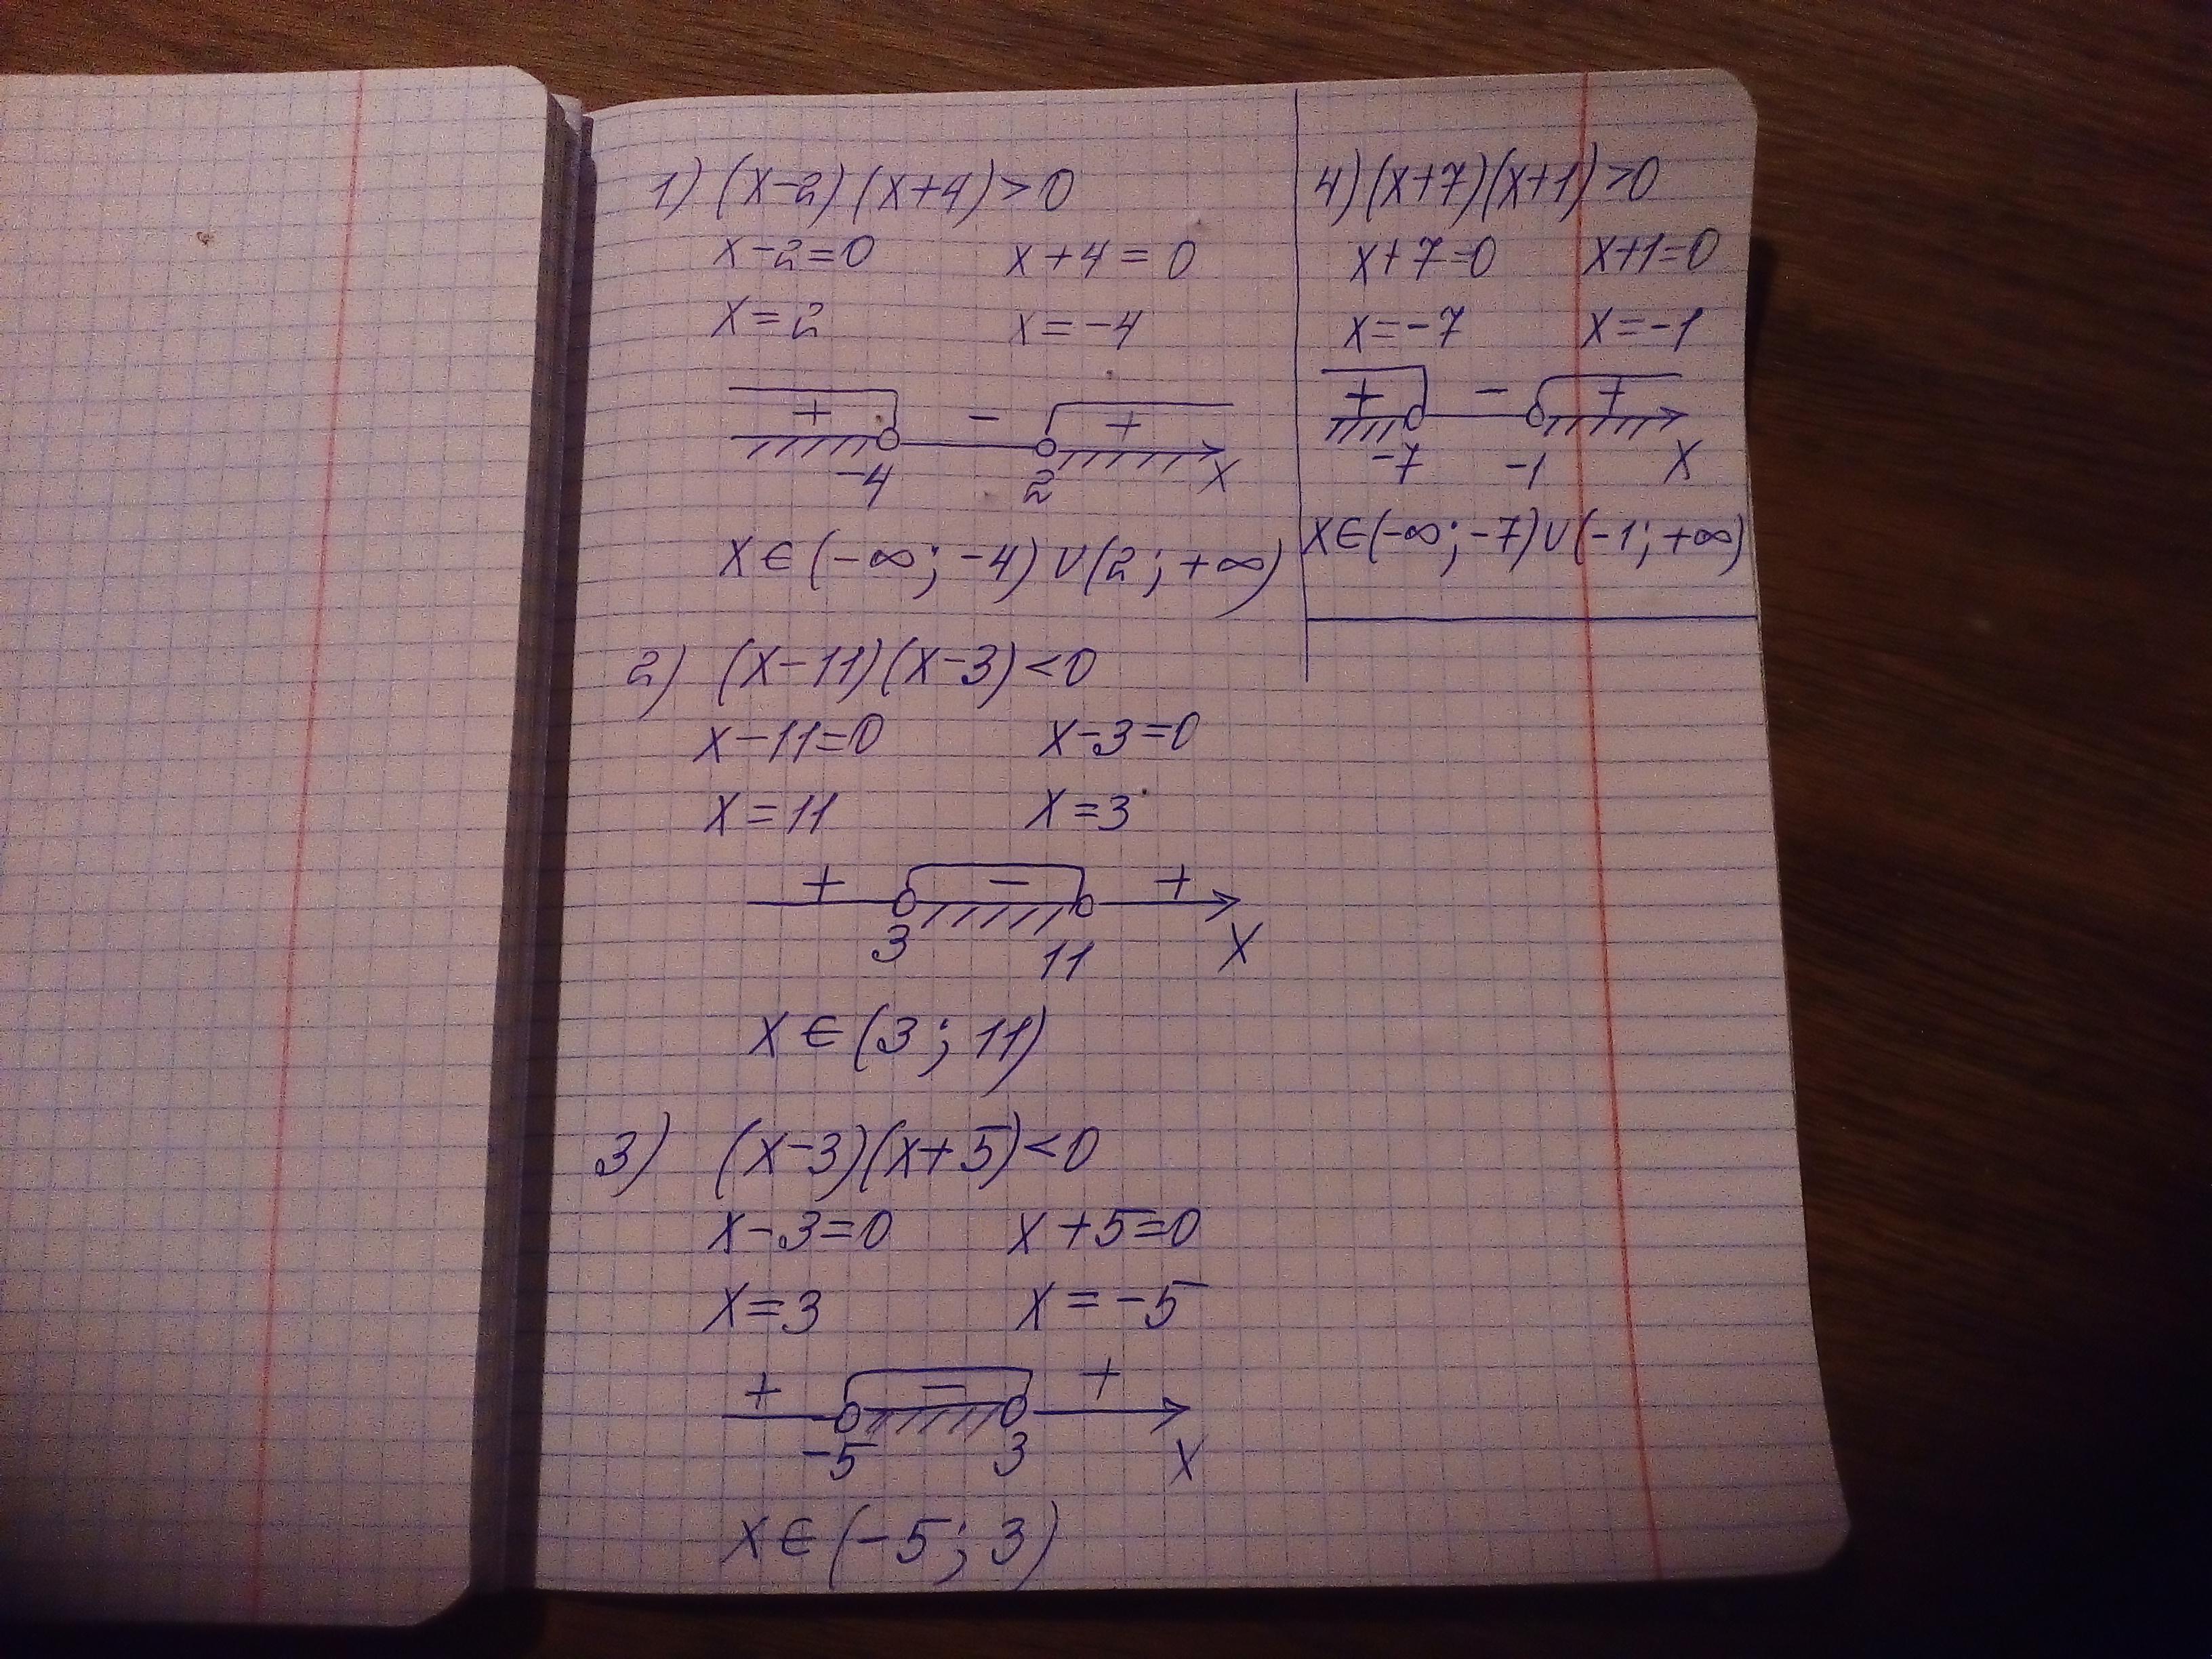 1) (x-2)(x+4)>0
x-2=0 x+4=0
x=2 x=-4
+ - +
-4 2 x
x∈(-∞;-4)∪(2;+∞)
2) (x-11)(x-3)<0
x-11=0 x-3=0
x=11 x=3
+ - +
3 11 x
x∈(3;11)
3) (x-3)(x+5)<0
x-3=0 x+5=0
x=3 x=-5
+ - +
-5 3 x
x∈(-5;3)
4) (x+7)(x+1)>0
x+7=0 x+1=0
x=-7 x=-1
+ - +
-7 -1 x
x∈(-∞;-7)∪(-1;+∞)